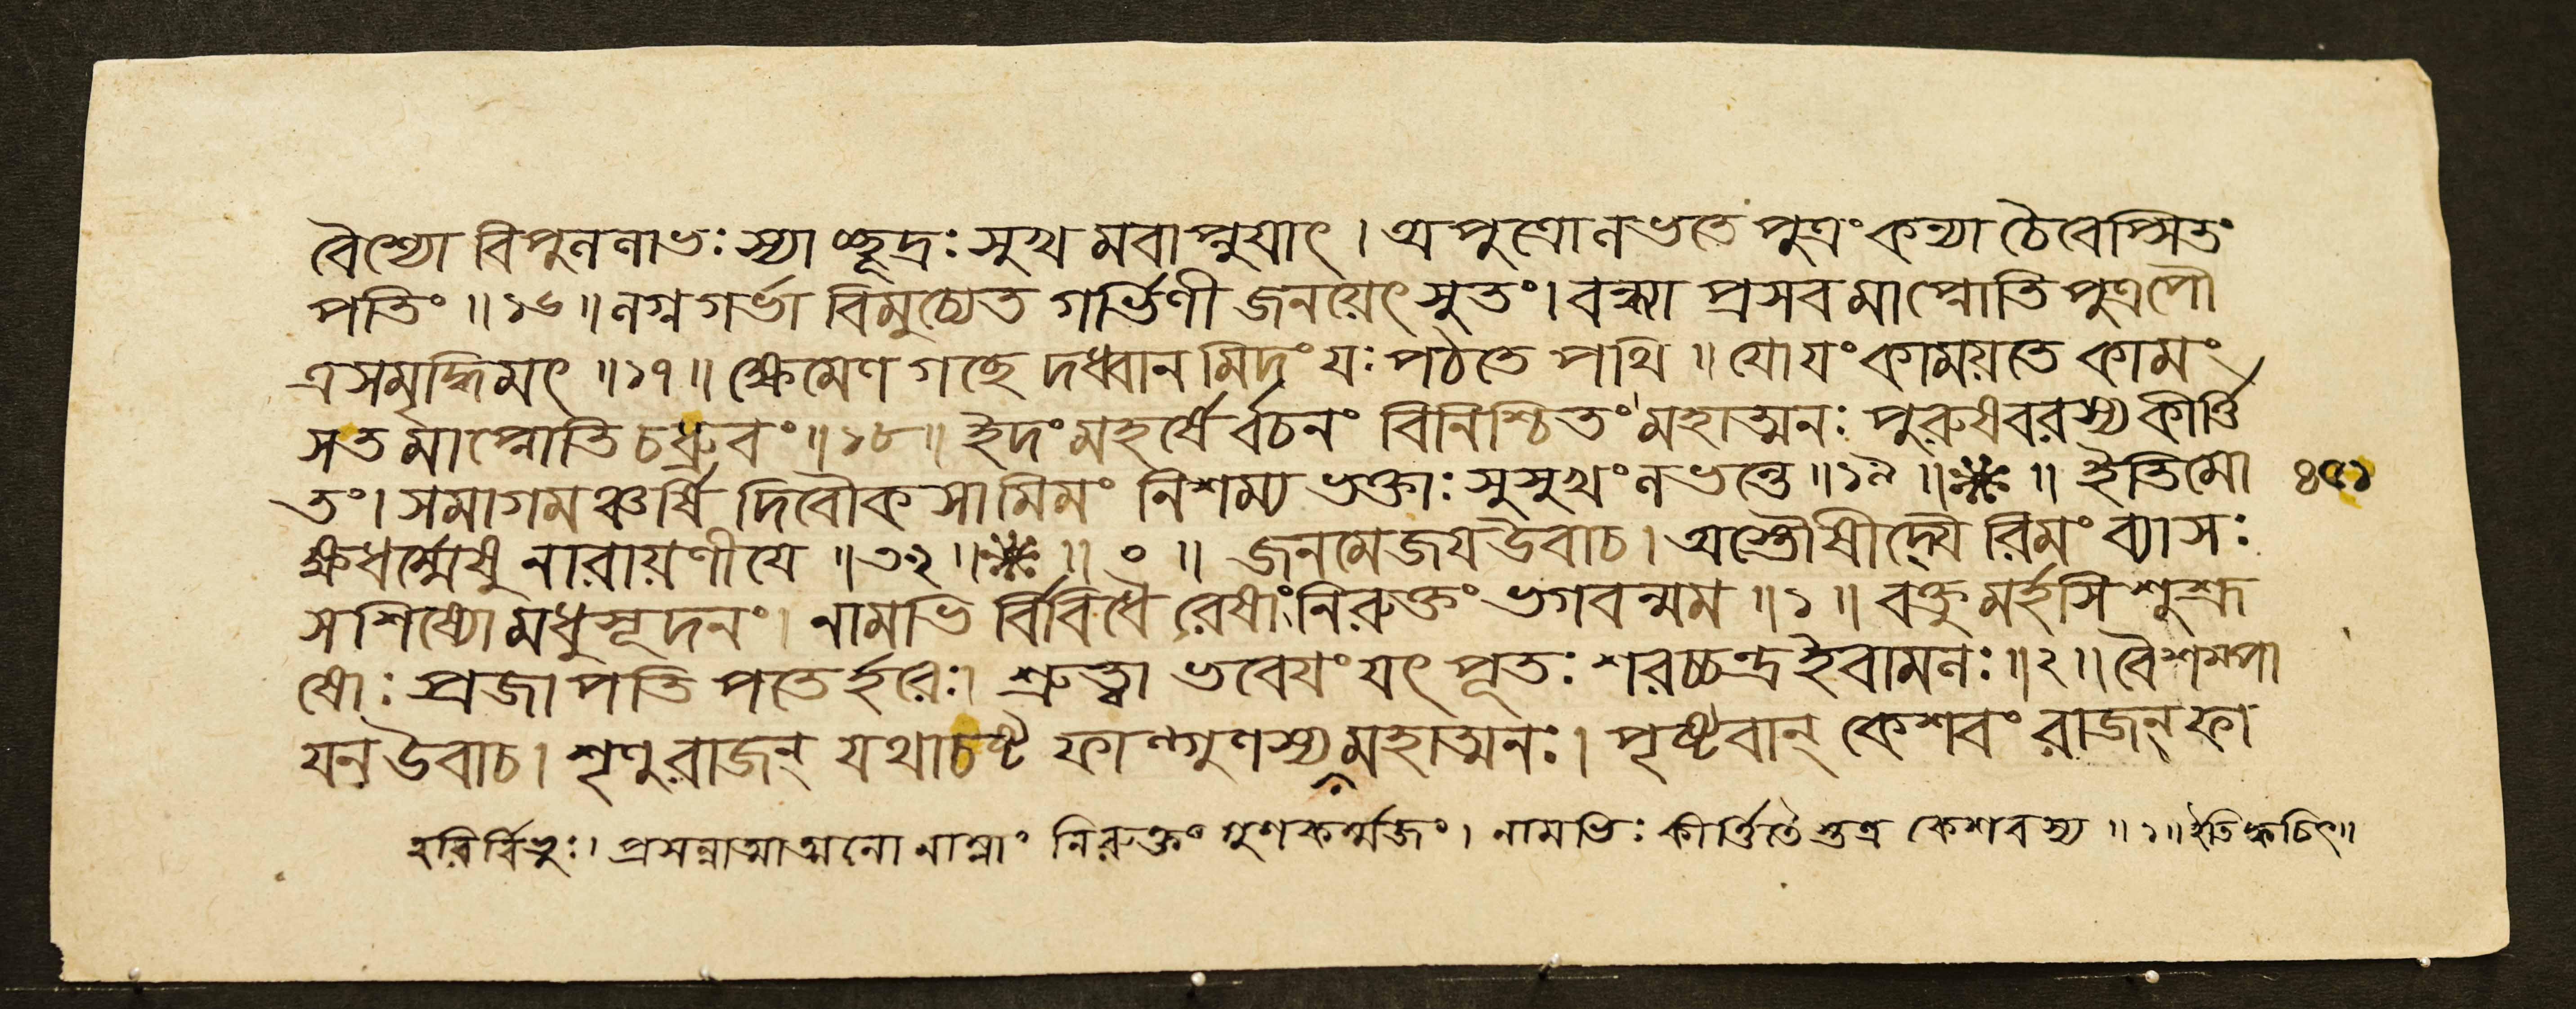 বৈশ্যো বিপুললাভঃ স্যাচ্ছূদ্রঃ সুখমবাপ্নুয়াৎ । অপুত্রো লভতে পুত্রং কন্যা চৈবেপ্সিতং
পতিং ॥ ১৬ ॥ লগ্নগর্ভা বিমুচ্যেত গর্ভিণী জনয়েৎ সুতং । বন্ধ্যা প্রসবমাপ্নোতি পুত্রপৌ
ত্রসমৃদ্ধিমৎ ॥ ১৭ ॥ ক্ষেমেণ গচ্ছেদধ্বানমিদং যঃ পঠতে পথি ॥ যো যং কাময়তে কামং
স তমাপ্নোতি চ ধ্রুবং ॥ ১৮ ॥ ইদং মহর্ষের্বচনং বিনিশ্চিতং মহাত্মনঃ পুরুষবরস্য কীর্ত্তি
তং । সমাগমঞ্চর্ষিদিবৌকসামিমং নিশম্য ভক্তাঃ সুসুখং লভন্তে ॥ ১৯ ॥ ❋ ॥ ইতি মো ৪৫১
ক্ষধর্ম্মেষু নারায়ণীয়ে ॥ ৩২ ॥ ❋ ॥ ० ॥ জনমেজয় উবাচ । অস্তৌষীদ্যৈরিমং ব্যাসঃ
সশিষ্যো মধুসূদনং । নামভির্বিবিধৈরেষাং নিরুক্তং ভগবন্মম ॥ ১ ॥ বক্তুমর্হসি শুশ্রূ
ষোঃ প্রজাপতিপতের্হরেঃ । শ্রুত্বা ভবেয়ং যৎ পূতঃ শরচ্চন্দ্র ইবামলঃ ॥ ২ ॥ বৈশম্পা
য়ন উবাচ । শৃণু রাজন্ যথাচষ্ট ফাল্গুণস্য মহাত্মনঃ । পৃষ্টবান্ কেশবং রাজন্ ফা
হরির্বিভুঃ । প্রসন্নাত্মাত্মনো নাম্নাং নিরুক্তং গুণকর্ম্মজং । নামভিঃ কীর্ত্তিতৈস্তত্র কেশবস্য ॥ ১ ॥ ইতি ক্বচিৎ ॥